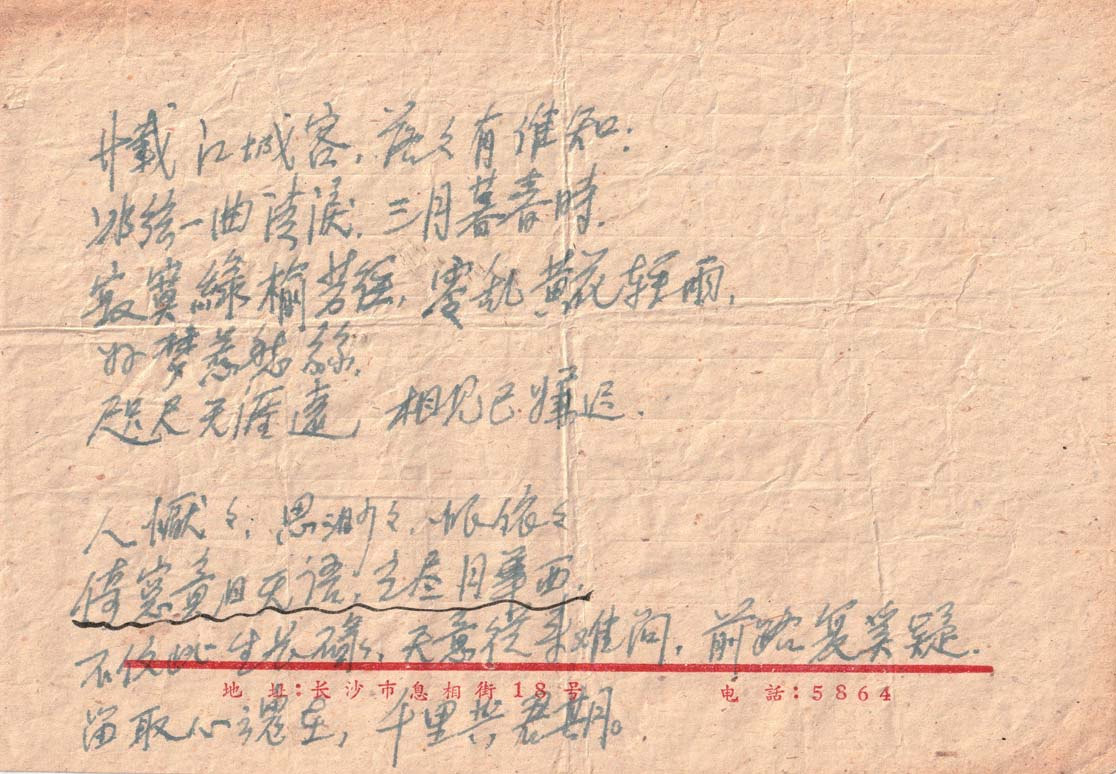 廿載江城客，落々有誰知．
冰弦一曲清淚．三月暮春時．
寂寞綠榆芳徑，零乱黄花輕雨，
好梦惹愁絲．
咫尺天涯遠，相見已嫌迟．
人懨々，思渺々，恨依々
倚窓竟日无语，立尽月華西．
不信此生长，天意從来难问，前路复奚疑．
地址：长沙市息相街18号 电話：5864
留取心魂在，千里共君期。